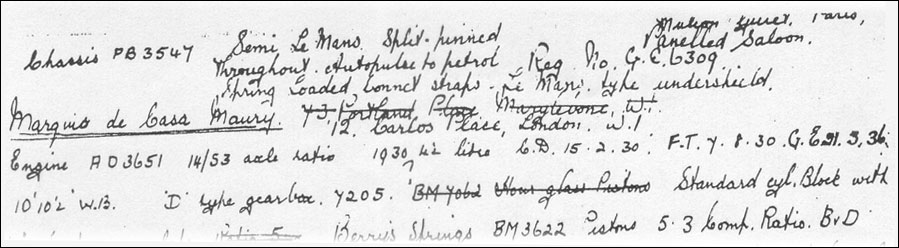 Chassis PB3547 Semi Le Mans. Split-pinned Paris,
Throughout. Autopulse to petrol Panelled Saloon.
Spring Loaded bonnet straps. Le Mans type undershield. Reg No. G.C. 6309
Marquis de Casa Maury. 43, Portland Place, Marylebone, W.1.
12, Carlos Place, London. W.1
Engine AD3651 14/53 axle ratio 1930 4½ litre C.D. 15.2.30. F.T. 7.8.30. G.E 21.3.36.
10'10½ W.B. 'D' type gearbox. 7205. BM7062 Hour glass Pistons Standard cyl. Block with
Berry's Springs BM3622 Pistons 5.3 Comp. Ratio. B & D